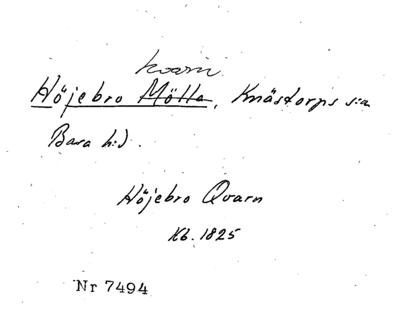 kvarn
Höjebro Mölla, Knästorps s:n
Bara h:d.
Höjebro Qvarn
Kb. 1825
Nr 7494